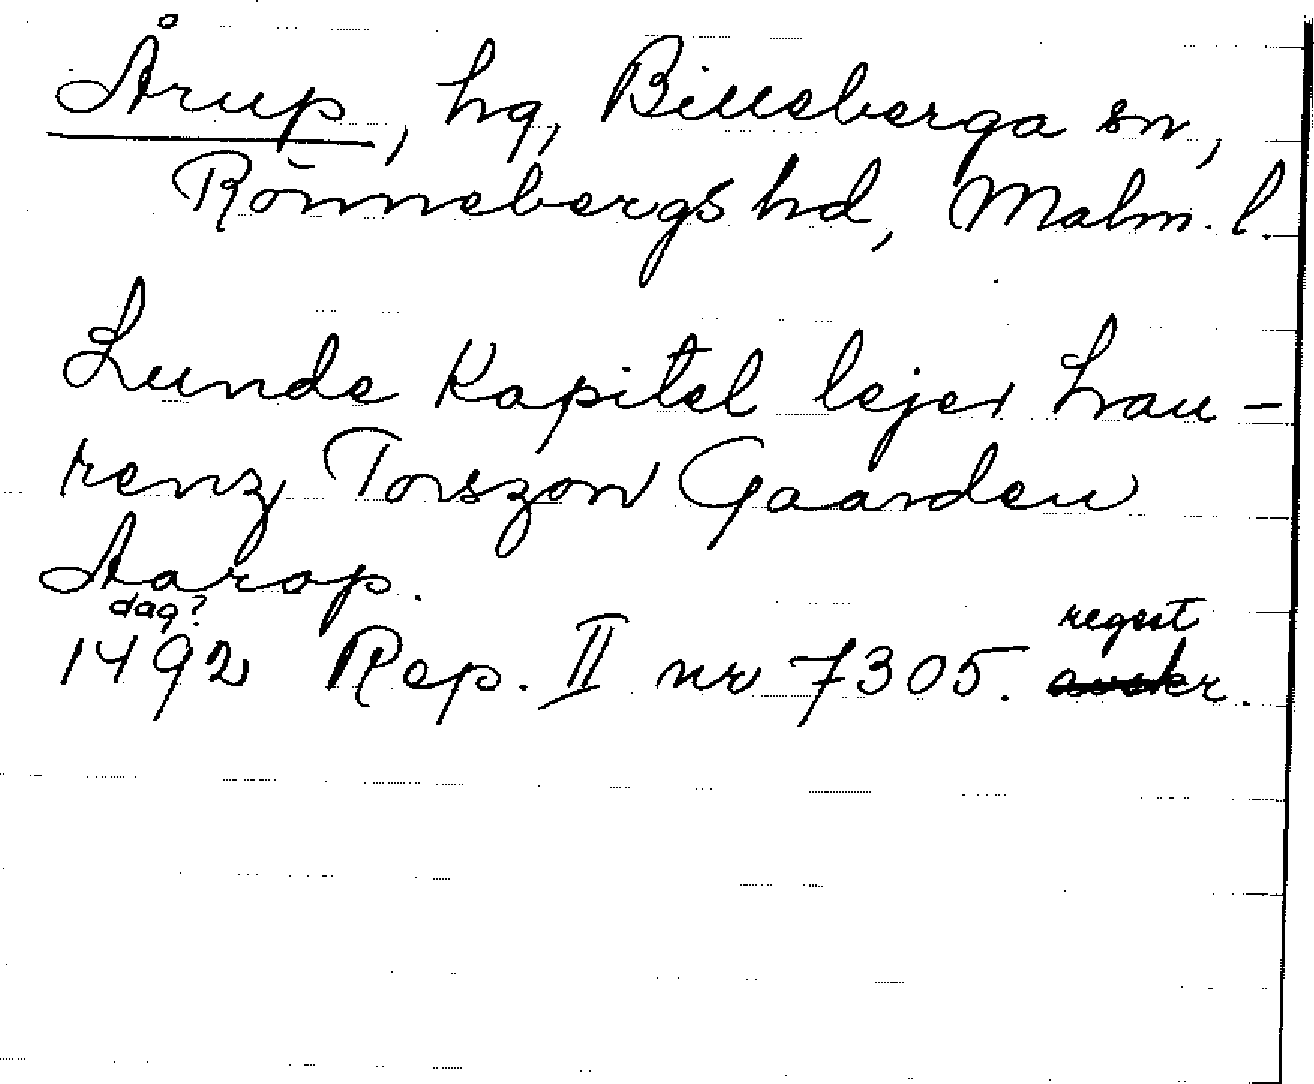 Årup, hg, Billeberga sn,
Rönnebergs hd, Malm. l.
Lunde Kapitel lejer Lau-
renz Torszon Gaarden
Aarop.
dag?
regest
1492 Rep. II nr 7305.